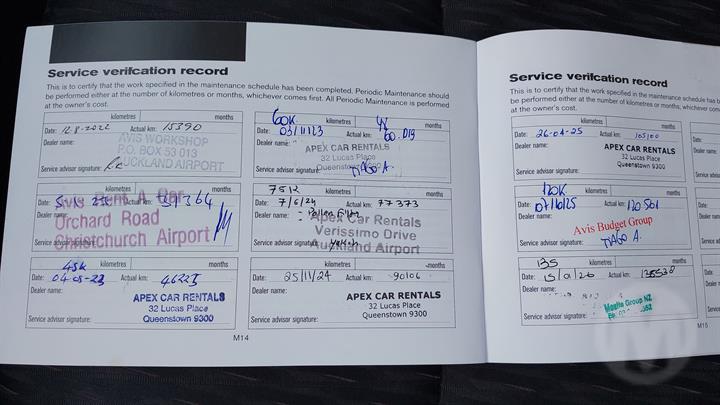 Service verifcation record
This is to certify that the work specified in the maintenance schedule has been completed. Periodic Maintenance should
be performed either at the number of kilometres or months, whichever comes first. All Periodic Maintenance is performed
at the owner's cost.
kilometres months
Date: 12.8.2022 Actual km: 15390
Dealer name: AVIS WORKSHOP
P.O. BOX 53 013
Service advisor signature: AUCKLAND AIRPORT
kilometres months
Date: Actual km:
Dealer name: Avis Rent A Car
Orchard Road
Service advisor Christchurch Airport
45K kilometres months
Date: 04-05-23 Actual km: 46225
Dealer name:
APEX CAR RENTALS
32 Lucas Place
Service advisor signature: Queenstown 9300
60K kilometres months
Date: 03/11/23 Actual km: 60.019
Dealer name: APEX CAR RENTALS
32 Lucas Place
Service advisor signature: TIAGO A.
75K kilometres months
Date: 7/6/24 Actual km: 77373
Dealer name: - Pollen Filter
Apex Car Rentals
Verissimo Drive
Service advisor signature: Auckland Airport
kilometres months
Date: 25/11/24 Actual km: 90106
Dealer name:
APEX CAR RENTALS
32 Lucas Place
Service advisor signature: Queenstown 9300
M14
Service verifcation record
This is to certify that the work specified in the maintenance schedule has
be performed either at the number of kilometres or months, whichever
at the owner's cost.
kilometres months
Date: 26-04-25 Actual km: 105100
Dealer name:
APEX CAR RENTALS
32 Lucas Place
Service advisor signature: Queenstown 9300
120K kilometres months
Date: 07/10/25 Actual km: 120 561
Dealer name:
Avis Budget Group
Service advisor signature: TIAGO A.
135 kilometres months
Date: Actual km:
Dealer name:
Group NZ
Service advisor signature:
M15
M